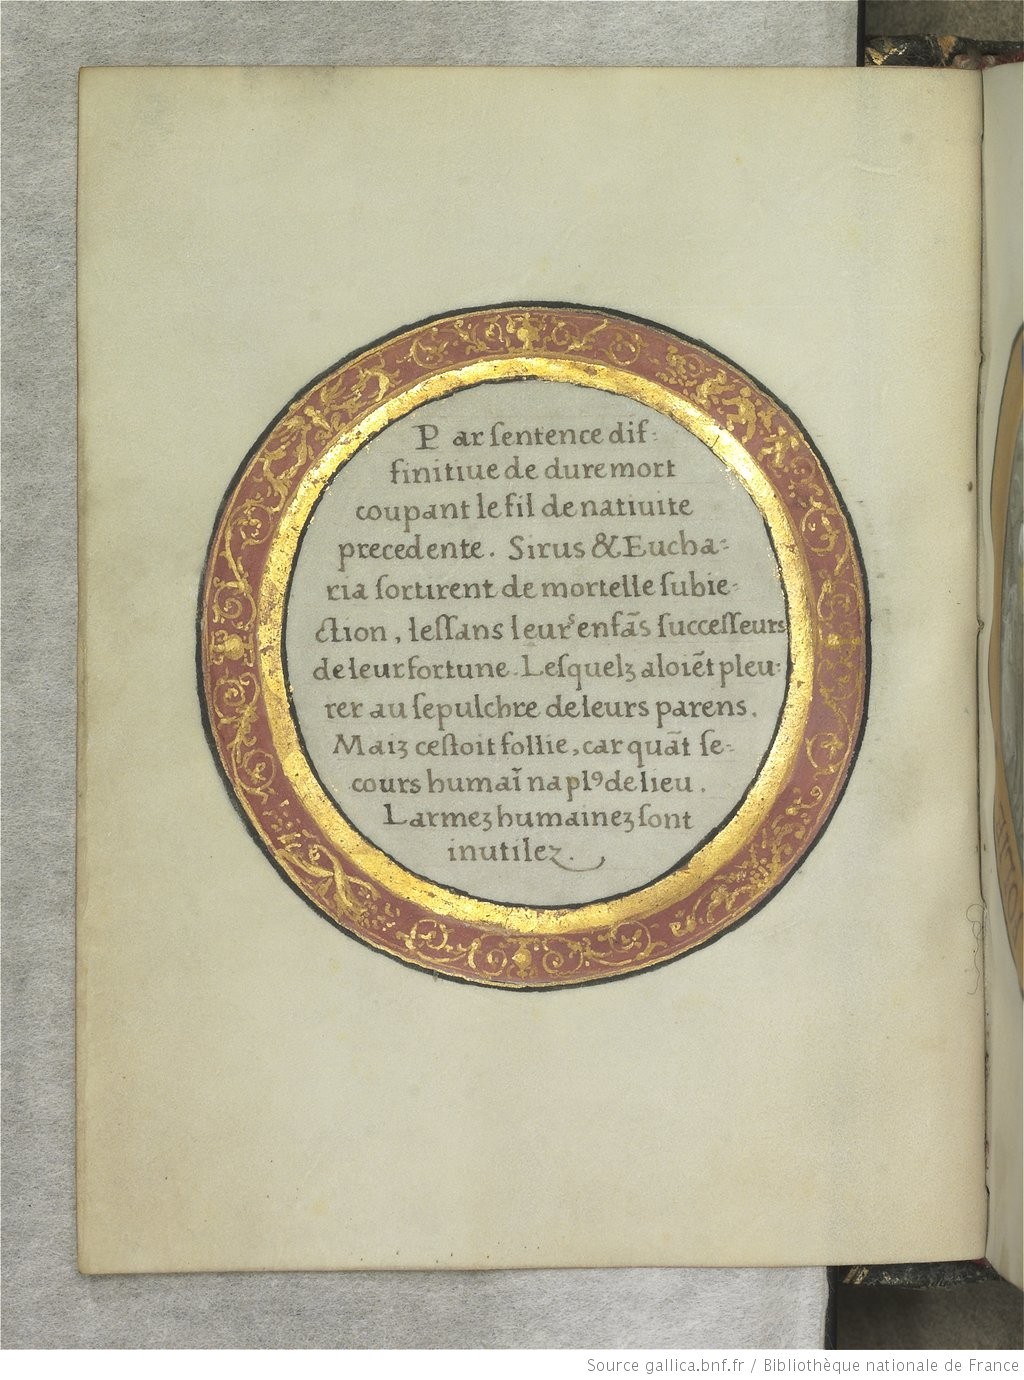 Par ſentence dif-
finitiue de dure mort
coupant le fil de natiuite
precedente. Sirus & Eucha-
ria ſortirent de mortelle ſubie-
ction, leſſans leurs enfãs ſucceſſeurs
de leur fortune. Leſquelz aloiẽt pleu-
rer au ſepulchre de leurs parens.
Maiz ceſtoit follie, car quãt ſe-
cours humaĩ na plꝰ de lieu.
Larmez humainez ſont
inutilez.
Source gallica.bnf.fr / Bibliothèque nationale de France